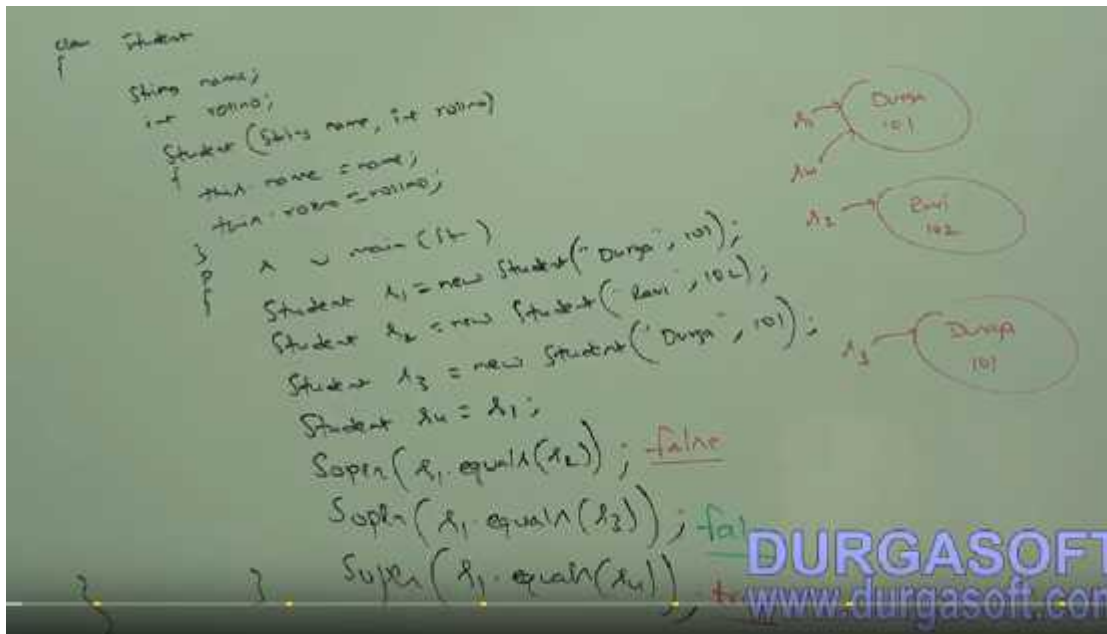 class Student
{
String name;
int rollno;
Student (String name, int rollno)
{
this.name = name;
this.rollno = rollno;
}
p s v main (St )
{
Student s1 = new Student("Durga", 101);
Student s2 = new Student("Ravi", 102);
Student s3 = new Student("Durga", 101);
Student s4 = s1;
Sopln(s1.equals(s2)); false
Sopln(s1.equals(s3)); fal
Sopln(s1.equals(s4));
}
}
s1 Durga
101
s4
s2 Ravi
102
s3 Durga
101
DURGASOFT
www.durgasoft.com